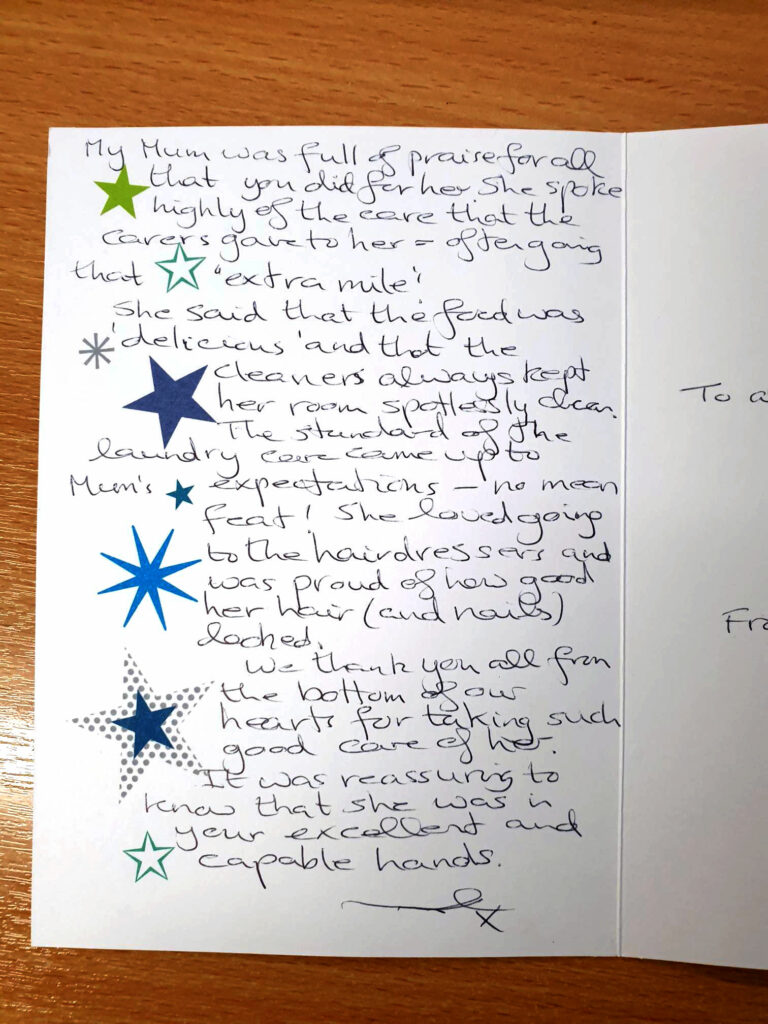 My Mum was full of praise for all
that you did for her. She spoke
highly of the care that the
carers gave to her – often going
that 'extra mile'
She said that the food was
'delicious' and that the
cleaners always kept
her room spotlessly clean.
The standard of the
laundry care came up to
Mum's expectations – no mean
feat! She loved going
to the hairdressers and
was proud of how good
her hair (and nails)
looked.
We thank you all from
the bottom of our
hearts for taking such
good care of her.
It was reassuring to
know that she was in
your excellent and
capable hands.
x
To a
Fro